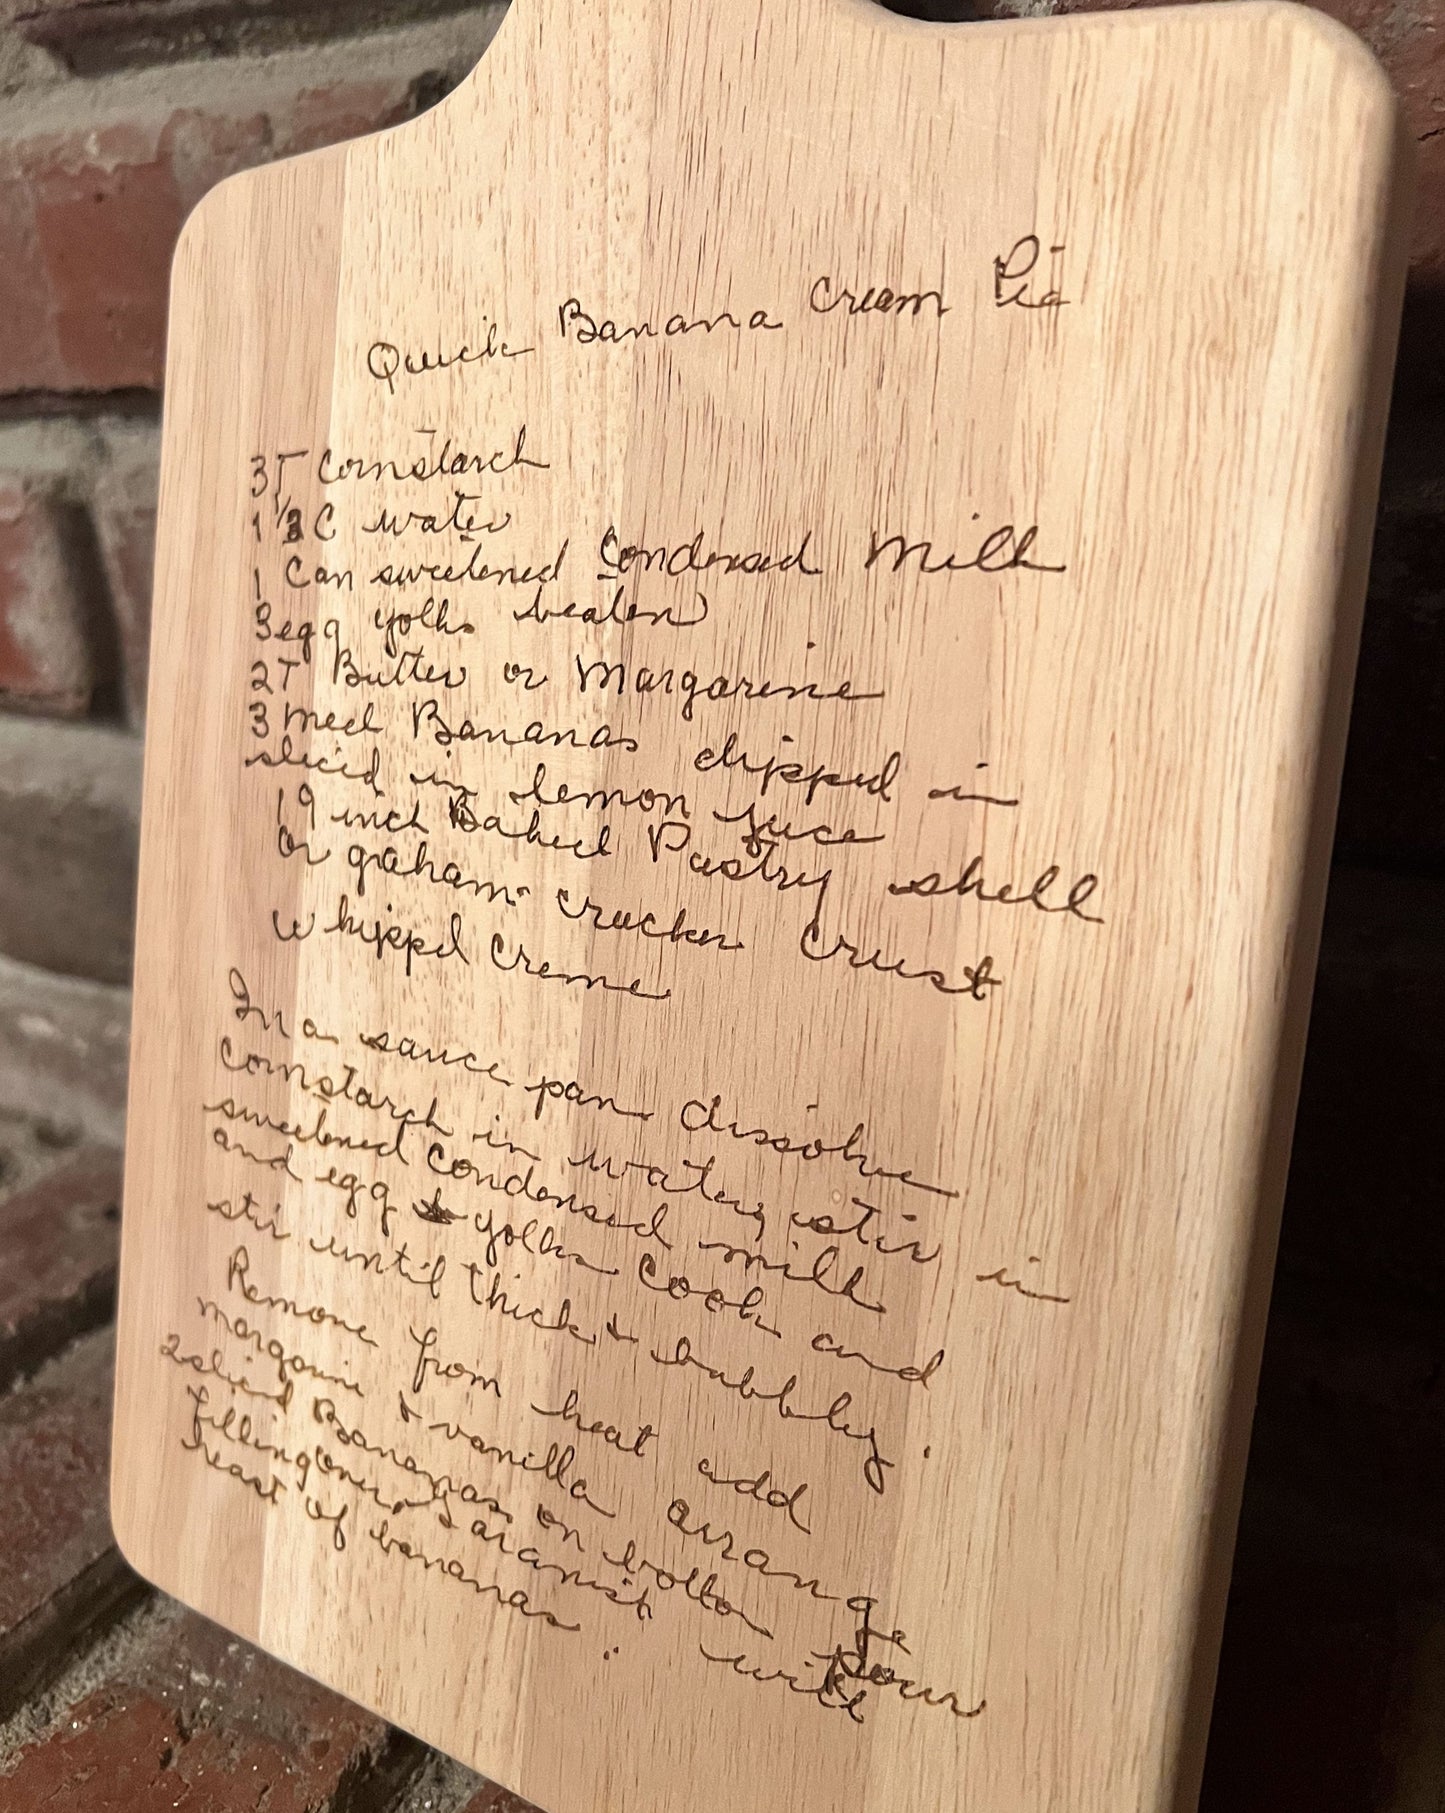 Quick Banana Cream Pie
3T Cornstarch
1 C water
1 Can sweetened Condensed Milk
3 egg yolks beaten
2T Butter or Margarine
3 Med Bananas dipped in
sliced in lemon juce
1 9 inch Baked Pastry shell
or graham cracker crust
Whipped Creme
In a sauce pan dissolve
Cornstarch in water, stir in
sweetened Condensed milk
and egg yolks Cook and
stir until thick + bubbly.
Remove from heat add
margarine + vanilla arrange
2 sliced Bananas on bottom pour
filling over, Garanish with
rest of bananas.